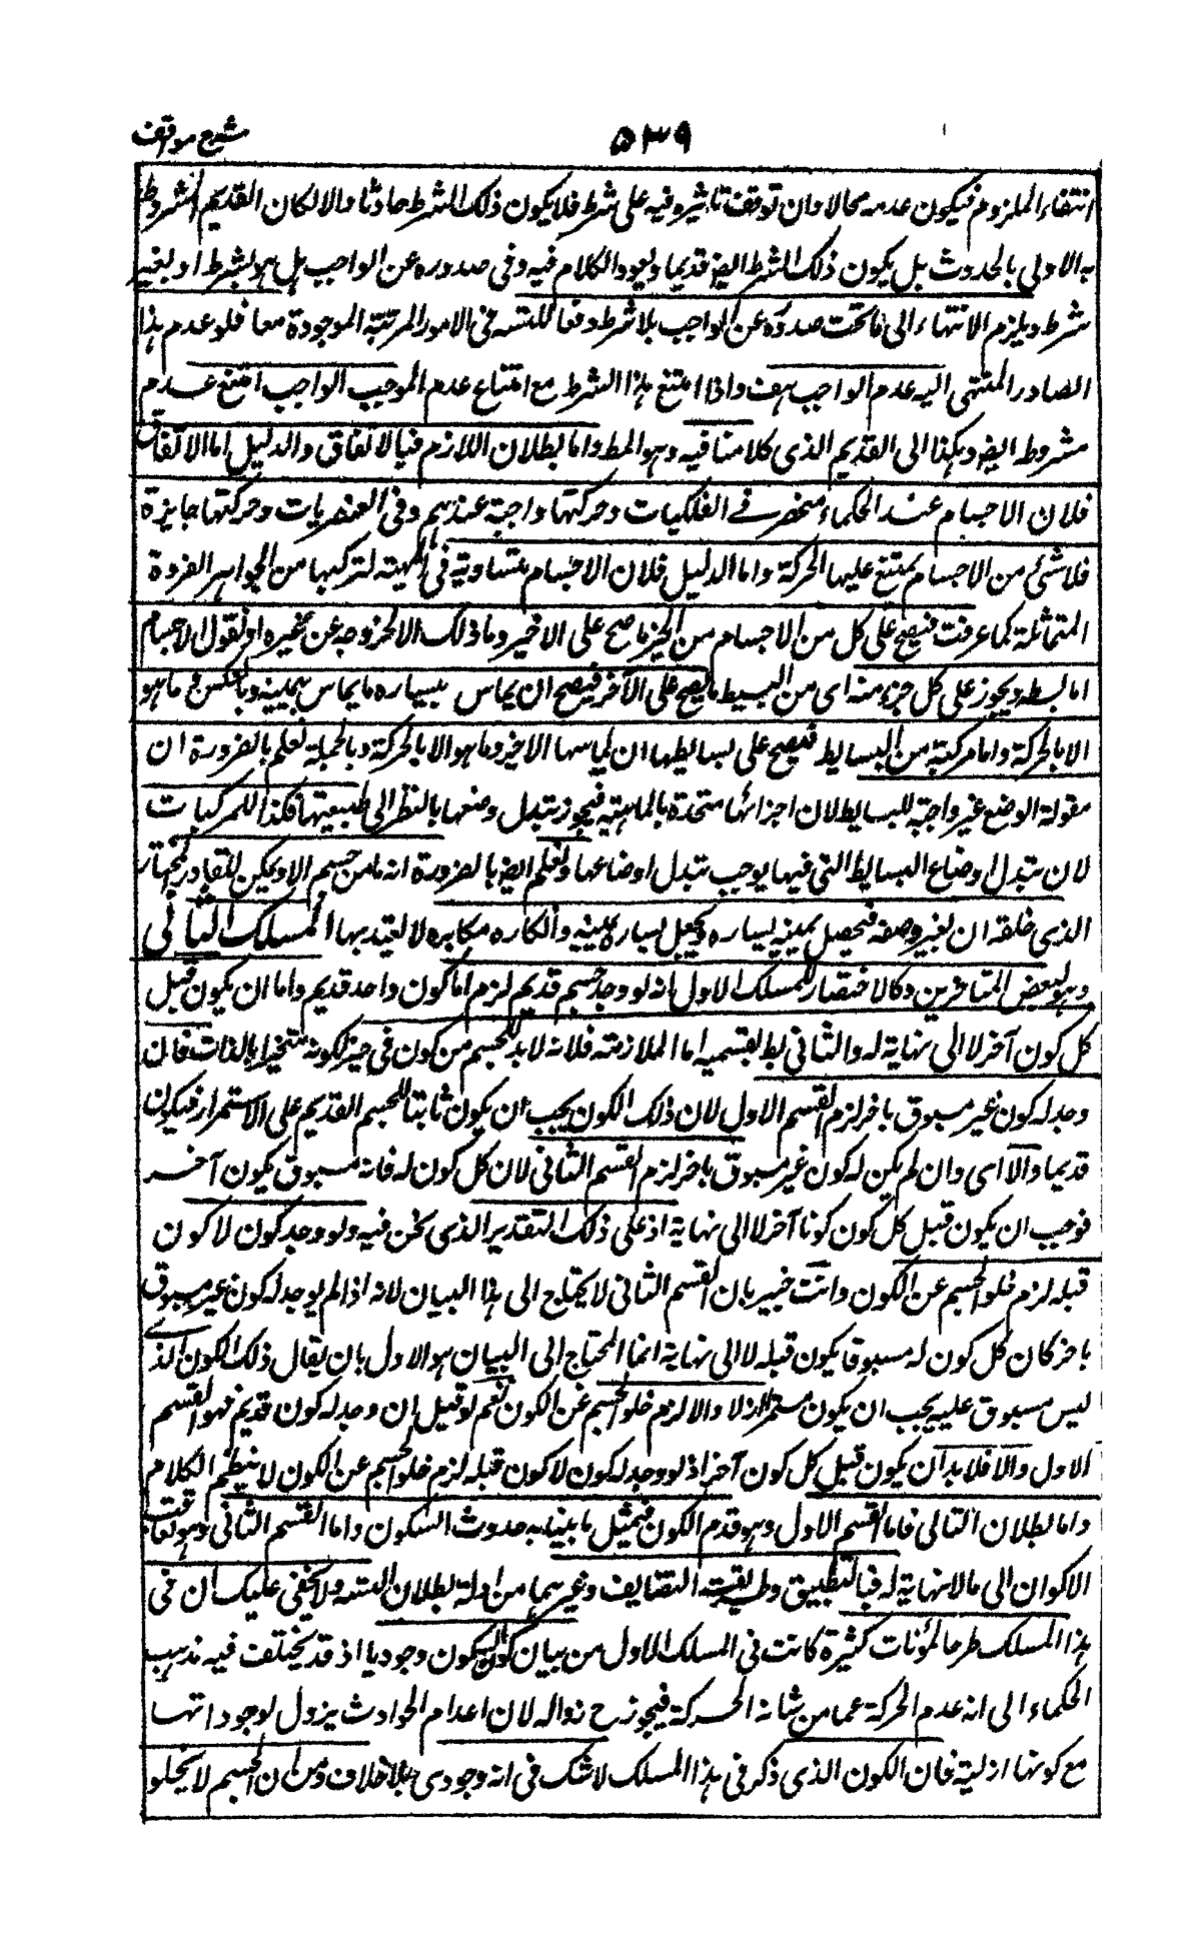 شرح مواقف
۵۳۹
انتفاء الملزوم فيكون عدمه محالا وان توقف تاثيره فيه على شرط فلا يكون ذلك الشرط حادثا والا لكان القديم المشروط
به الاولى بالحدوث بل يكون ذلك الشرط ايض قديما ويعود الكلام فيه وفى صدوره عن الواجب هل هو بشرط او بغير
شرط ويلزم الانتهاء الى ما يجب صدوره عن الواجب بلا شرط دفعا للتسه فى الامور المرتبة الموجودة معا فلو عدم هذا
الصادر المنتهى اليه عدم الواجب هف واذا امتنع هذا الشرط مع امتناع عدم الموجب الواجب امتنع عدم
مشروطه ايض وهكذا الى القديم الذى كلامنا فيه وهو المط واما بطلان اللازم فبالاتفاق والدليل اما الاتفاق
فلان الاجسام عند الحكماء منحصر فے الفلكيات وحركتها واجبة عندهم وفى العنصريات وحركتها جايزة
فلا شئ من الاجسام يمتنع عليها الحركة واما الدليل فلان الاجسام متساوية فى المهية لتركبها من الجواهر الفردة
المتماثلة كما عرفت فيصح على كل من الاجسام من الحيز ما صح على الاخير وما ذلك الا لخروجه عن حيزه او نقول الاجسام
اما بسيط ويجوز على كل جزء منه اى من البسيط ما يصح على الآخر فيصح ان يماس بيساره ما يماس بيمينه وبالعكس وما هو
الا بالحركة واما مركبة من البسايط فيصح على بسايطها ان يماسها الاخير وما هو الا بالحركة وبالجملة نعلم بالضرورة ان
مقولة الوضع غير واجبة للبسايط لان اجزائها متحدة بالماهية فيجوز تبدل وضعها بالنظر الى طبيعتها فكذا للمركبات
لان تبدل اوضاع البسايط التى فيها يوجب تبدل اوضاعها ونعلم ايض بالضرورة انه ما من جسم الا ويمكن للقادر المختار
الذى خلقه ان يغير وصفه فيحصل يمينه يساره ويجعل يساره يمينه وانكاره مكابرة لا يعتد بها المسلك الثانى
وهو لبعض المتاخرين وكالاختصار للمسلك الاول انه لو وجد جسم قديم لزم اما كون واحد قديم واما ان يكون قبل
كل كون آخر لا الى نهاية له والثانى بط بقسميه اما الملازمة فلانه لابد للجسم من كون فى حيز لكونه متحيزا بالذات فان
وجد له كون غير مسبوق باخر لزم القسم الاول لان ذلك الكون يجب ان يكون ثابتا للجسم القديم على الاستمرار فيكون
قديما والا اى وان لم يكن له كون غير مسبوق باخر لزم القسم الثانى لان كل كون له فانه مسبوق بكون آخر
فوجب ان يكون قبل كل كون كونا آخر لا الى نهاية اذ على ذلك التقدير الذى نحن فيه ولو وجد كون لا كون
قبله لزم خلو الجسم عن الكون وانت خبير بان القسم الثانى لا يحتاج الى هذا البيان لانه اذا لم يوجد له كون غير مسبوق
باخر كان كل كون له مسبوقا بكون قبله لا الى نهاية انما المحتاج الى البيان هو الاول بان يقال ذلك الكون الذے
ليس مسبوق عليه يجب ان يكون مستمرا ازلا والا لزم خلو الجسم عن الكون نعم لو قيل ان وجد له كون قديم فهو القسم
الاول والا فلا بد ان يكون قبل كل كون آخر اذ لو وجد له كون لا كون قبله لزم خلو الجسم عن الكون لا ينتظم الكلام
واما بطلان التالى فاما القسم الاول وهو قدم الكون فبمثل ما بينا به حدوث السكون واما القسم الثانى وهو تعاقب
الاكوان الى ما لا نهاية له فبالتطبيق وطريقة التضايف وغيرهما من ادلة بطلان التسه ولا يخفى عليك ان فى
هذا المسلك طرحا لمؤنات كثيرة كانت فى المسلك الاول من بيان كون السكون وجوديا اذ قد يختلف فيه مذهب
الحكماء الى انه عدم الحركة عما من شانه الحركة فيجوز ح زواله لان اعدام الحوادث يزول لوجوداتها
مع كونها ازلية فان الكون الذى ذكر فى هذا المسلك لا شك فى انه وجودى بلا خلاف ومن ان الجسم لا يخلو